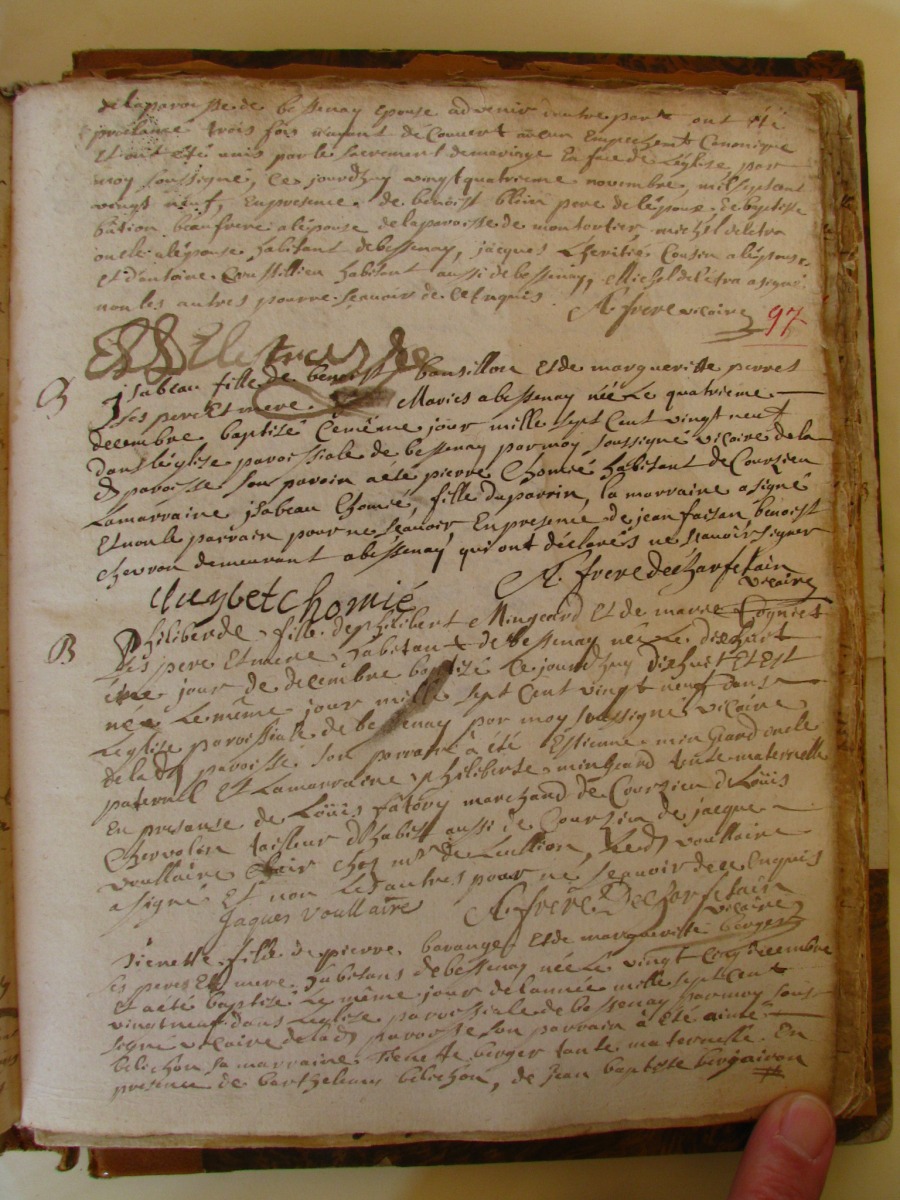 de la paroisse de bessenay epouse advenir dautre part ont été
proclamé trois fois n'ayant decouvert aucun Empechemt Canonique
Et ont été unis par le sacrement de mariage En face de L'église par
moy soussigné, ce jourdhuy vingt quatrieme novembre, mil sept cent
vingt neuf, En presence de benoist blein pere de l'époux de baptiste
bâtion beaufrere a lépouse de la paroisse de montortier michel deletra
oncle a lépouse habitant de bessenay, jacques Lheritier Cousin a l'épouse
et d'antoine habitant aussi de bessenay, Michel deletra a signé
non les autres pour ne sçavoir de ce Enquis
A. frere vicaire
97
B
jsabeau fille de benoist bansillon Et de margueritte perret
ses pere Et mere Mariés a bessenay née Le quatrieme
decembre baptisé Ce même jour mille sept Cent vingt neuf
dans l'église paroissiale de bessenay par moy soussigné vicaire de la
d paroisse son parain a été pierre Chomié habitant de Courzieu
La marraine jsabeau Chomié, fille du parrin, la marraine a signé
Et non le parrain pour ne sçavoir En presence de jean faisan benoist
chevron demeurant a bessenay qui ont déclarés ne sçavoir signer
A. frere decharfetain
vicaire
chomié
B
Philiberde fille de philibert Mingeard Et de marie Cogniet
ses pere Et mere habitant de bessenay née Le dixhuit
jour de decembre baptisé Ce jourdhuy dixhuit Et Est
née Le même jour mille sept Cent vingt neuf dans
L'église paroissiale de bessenay par moy soussigné vicaire
de lad paroisse son parrain à été Estienne mingeard oncle
paternel Et La marraine philiberte mingeard tante maternelle
En presanse de Loüis fatovy marchand de Courzieu de Loüis
Chervolin tailleur d'habist aussi de Courzieu de jacque
voullaire Clair chez mr de Lullion, Led voullaire
a signé Et non Les autres pour ne sçavoir de ce Enquis
Jaques Voullaire
A. frere Decharfetain
vicaire
Tienette fille de pierre baranger Et de margueritte berger
ses pere Et mere habitans de bessenay née Le vingt Cinq decembre
Et a été baptisé Le même jour de l'année mille sept Cent
vingt neuf dans L'église paroissiale de bessenay par moy sous
signé vicaire de lad paroisse son parrain à été aimé
bilichon sa marraine Tienette berger tante maternelle. En
presence de barthelemy bilichon, de jean baptiste bergairon